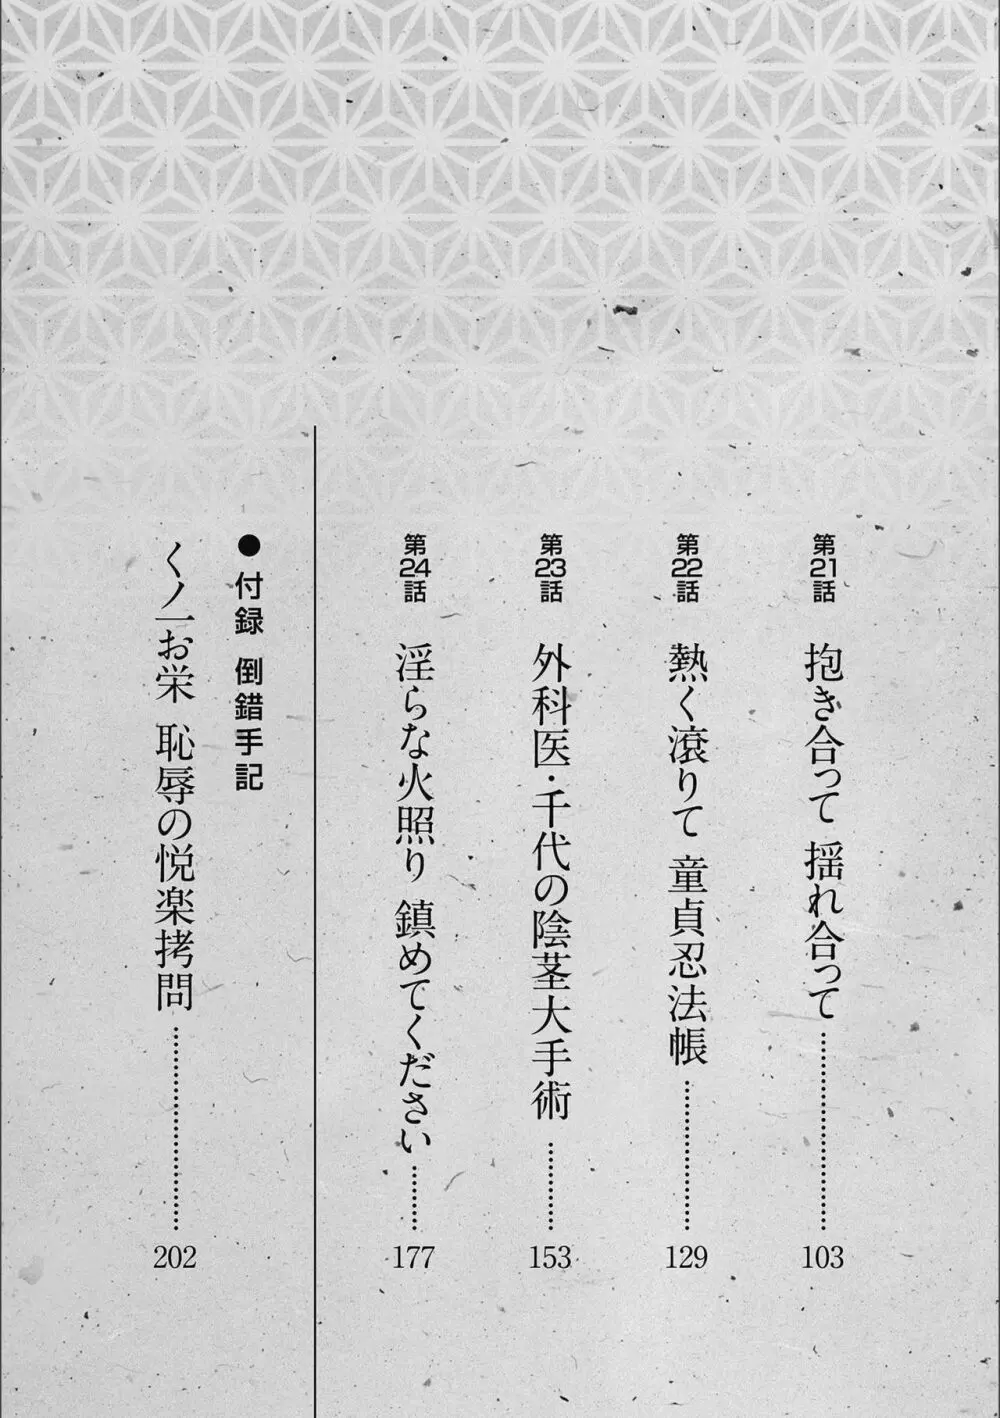 第21話 抱き合って 揺れ合って 103
第22話 熱く滾りて 童貞忍法帳 129
第23話 外科医・千代の陰茎大手術 153
第24話 淫らな火照り 鎮めてください 177
●付録 倒錯手記
くノ一お栄 恥辱の悦楽拷問 202